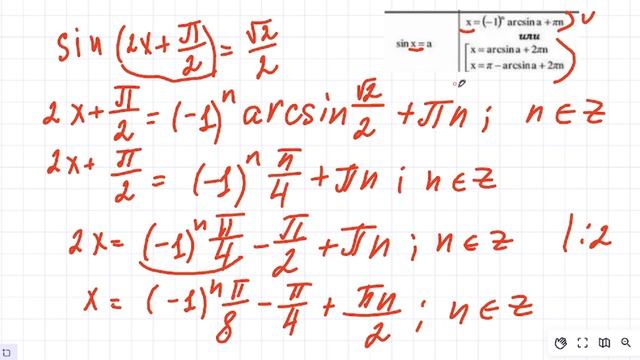 sin(2x + π/2) = √2/2
x = (-1)ⁿ arcsin a + πn
или
sin x = a
x = arcsin a + 2πn
x = π - arcsin a + 2πn
2x + π/2 = (-1)ⁿ arcsin √2/2 + πn; n ∈ z
2x + π/2 = (-1)ⁿ π/4 + πn; n ∈ z
2x = (-1)ⁿ π/4 - π/2 + πn; n ∈ z /:2
x = (-1)ⁿ π/8 - π/4 + πn/2; n ∈ z